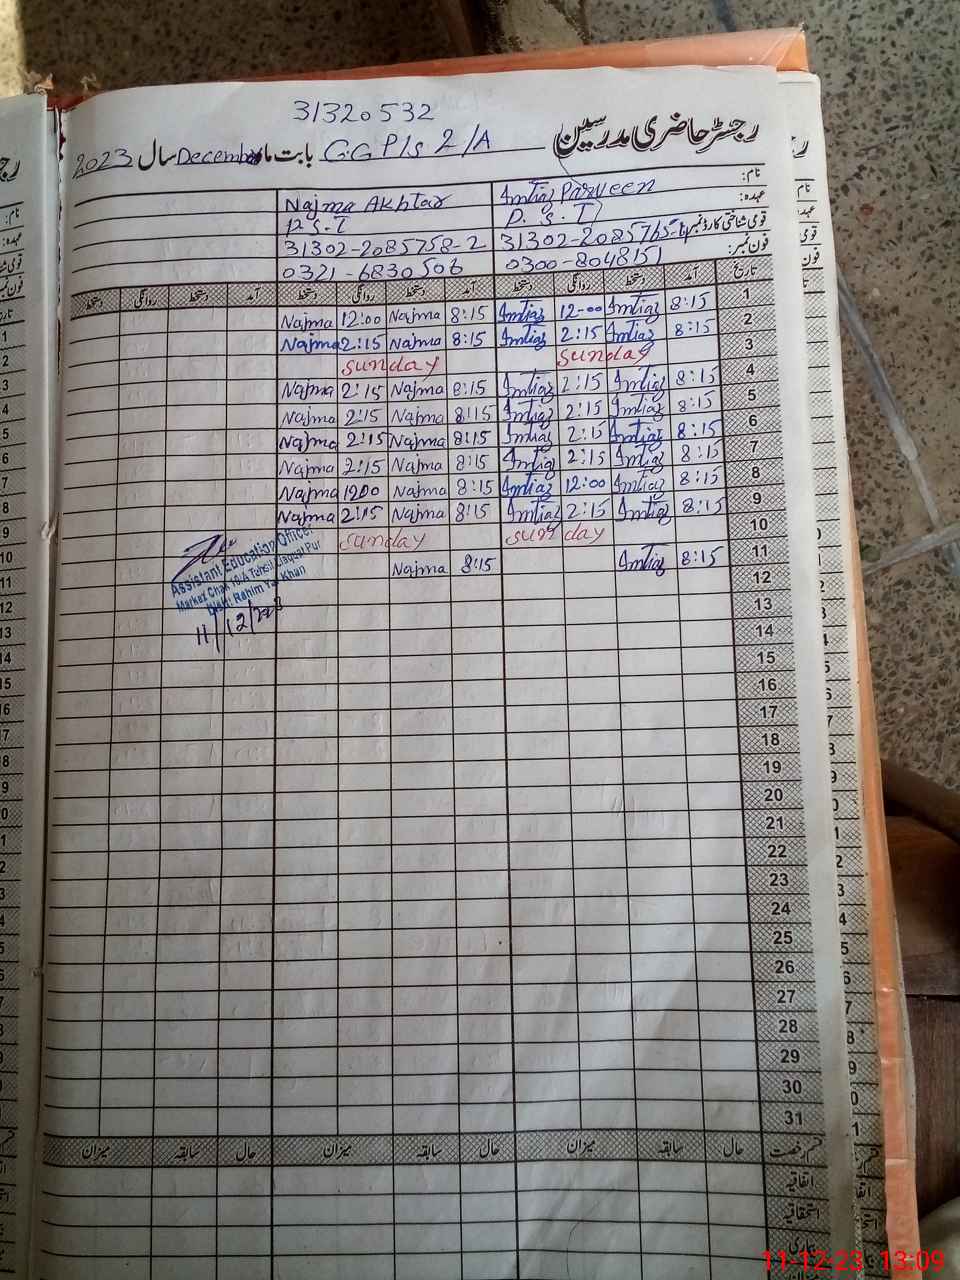 31320532
رجسٹر حاضری مدرسین G.G P/s 2/A بابت ماہ December سال 2023
نام: Imtiaz Parveen Najma Akhtar
عہدہ: P.S.T P.S.T
قومی شناختی کارڈ نمبر: 31302-2085758-2
فون نمبر: 0300-8048151 0321-6830506
تاریخ آمد دستخط روانگی دستخط آمد دستخط روانگی دستخط آمد دستخط روانگی دستخط
1 8:15 Imtiaz 12-00 Imtiaz 8:15 Najma 12:00 Najma
2 8:15 Imtiaz 2:15 Imtiaz 8:15 Najma 2:15 Najma
3 sunday sunday
4 8:15 Imtiaz 2:15 Imtiaz 8:15 Najma 2:15 Najma
5 8:15 Imtiaz 2:15 Imtiaz 8:15 Najma 2:15 Najma
6 8:15 Imtiaz 2:15 Imtiaz 8:15 Najma 2:15 Najma
7 8:15 Imtiaz 2:15 Imtiaz 8:15 Najma 2:15 Najma
8 8:15 Imtiaz 12:00 Imtiaz 8:15 Najma 1200 Najma
9 8:15 Imtiaz 2:15 Imtiaz 8:15 Najma 2:15 Najma
10 sunday sunday
11 8:15 Imtiaz 8:15 Najma
Assistant Education Officer
Markaz Chak 10/A Tehsil Liaquat Pur
Distt: Rahim Yar Khan
11/12/2023
12
13
14
15
16
17
18
19
20
21
22
23
24
25
26
27
28
29
30
31
قسم رخصت حال سابقہ میزان حال سابقہ میزان حال سابقہ میزان
اتفاقیہ
استحقاقیہ
بیماری
11-12-23 13:09